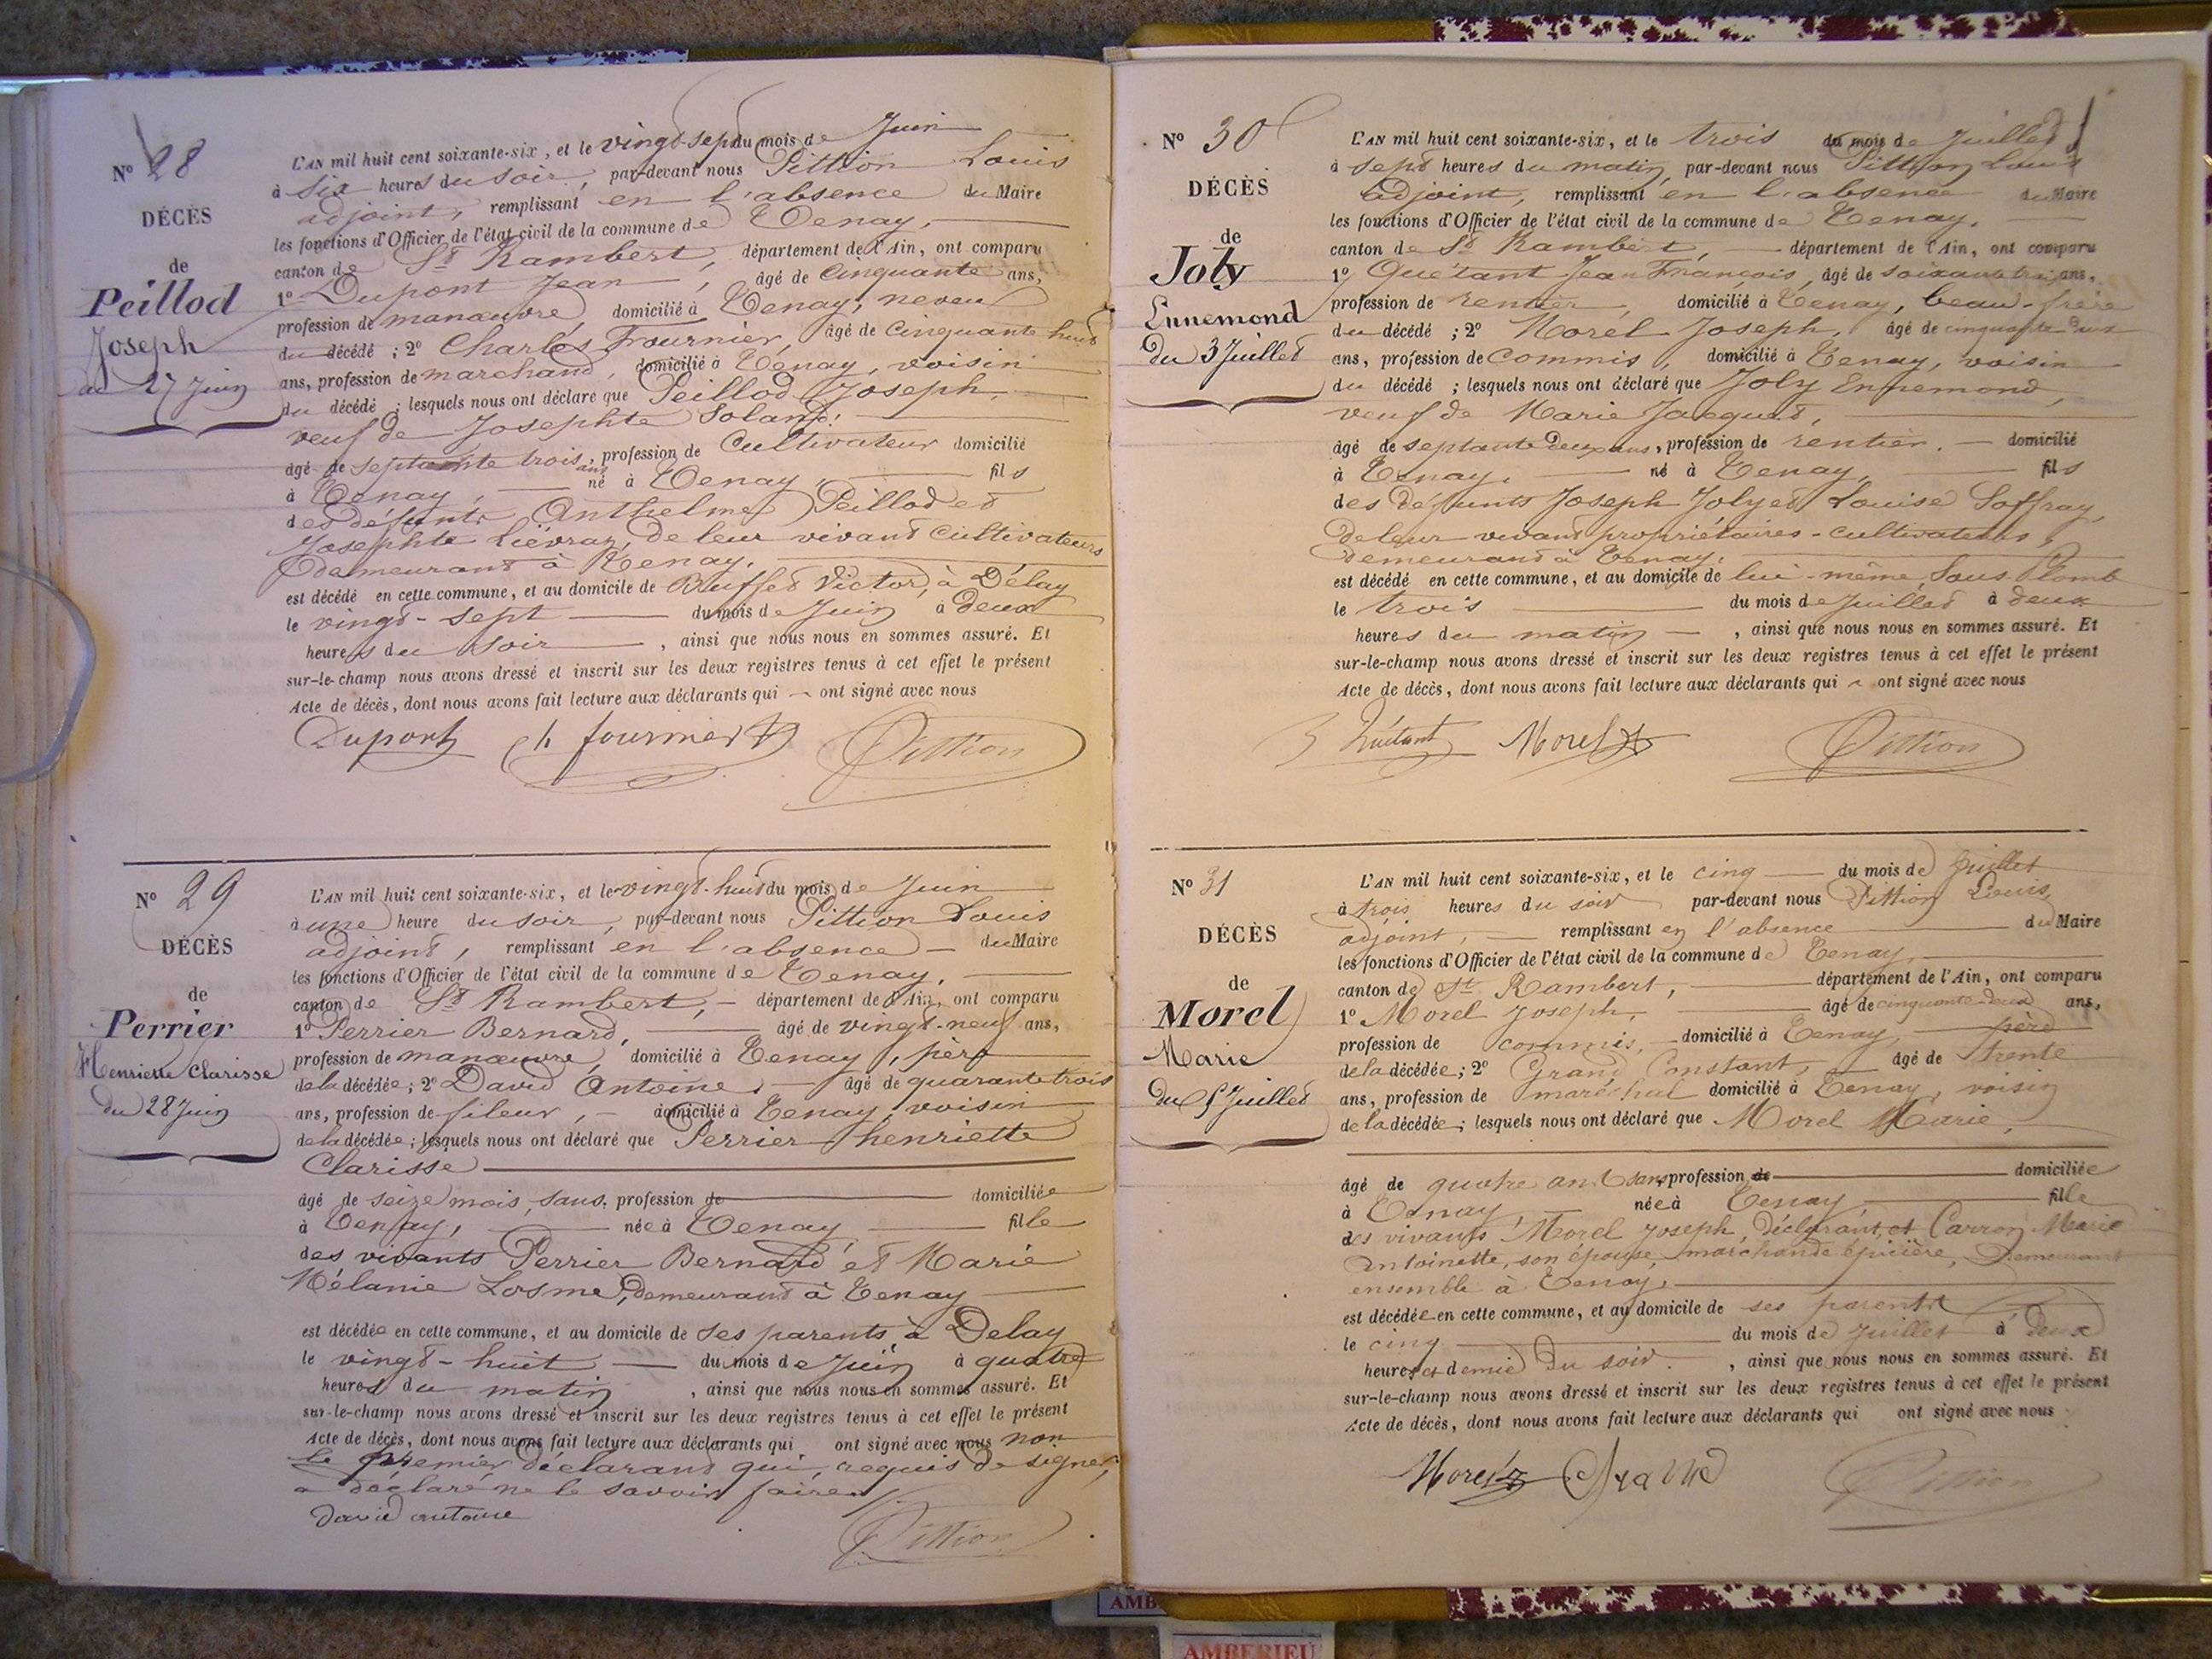 N° 28
DÉCÈS
de
Peillod
Joseph
du 27 Juin
L'AN mil huit cent soixante-six, et le vingt-sept du mois de Juin
à six heures du soir, par-devant nous Pittion Louis
adjoint, remplissant en l'absence du Maire
les fonctions d'Officier de l'état civil de la commune de Tenay,
canton de St Rambert, département de l'Ain, ont comparu
1° Dupont Jean, âgé de Cinquante ans,
profession de manœuvre, domicilié à Tenay, neveu
du décédé ; 2° Charles Fournier, âgé de Cinquante huit
ans, profession de marchand, domicilié à Tenay, voisin
du décédé ; lesquels nous ont déclaré que Peillod Joseph,
veuf de Josephte
âgé de septante trois ans, profession de Cultivateur domicilié
à Tenay, né à Tenay, fils
des défunts Anthelme Peillod et
Josephte Liévraz, de leur vivant cultivateurs
demeurant à Tenay.
est décédé en cette commune, et au domicile de Buffet Victor, à Délay
le vingt-sept du mois de Juin à deux
heures du soir, ainsi que nous nous en sommes assuré. Et
sur-le-champ nous avons dressé et inscrit sur les deux registres tenus à cet effet le présent
Acte de décès, dont nous avons fait lecture aux déclarants qui ont signé avec nous
Dupont Ch fournier Pittion
N° 29
DÉCÈS
de
Perrier
Henriette Clarisse
du 28 Juin
L'AN mil huit cent soixante-six, et le vingt-huit du mois de Juin
à une heure du soir, par-devant nous Pittion Louis
adjoint, remplissant en l'absence du Maire
les fonctions d'Officier de l'état civil de la commune de Tenay,
canton de St Rambert, département de l'Ain, ont comparu
1° Perrier Bernard, âgé de vingt-neuf ans,
profession de manœuvre, domicilié à Tenay, père
de la décédée; 2° David Antoine, âgé de quarante trois
ans, profession de fileur, domicilié à Tenay, voisin
de la décédée; lesquels nous ont déclaré que Perrier henriette
Clarisse
âgé de seize mois, sans profession de domiciliée
à Tenay, née à Tenay fille
des vivants Perrier Bernard et Marie
Mélanie Losme, demeurant à Tenay
est décédée en cette commune, et au domicile de ses parents à Delay
le vingt-huit du mois de Juin à quatre
heures du matin, ainsi que nous nous en sommes assuré. Et
sur-le-champ nous avons dressé et inscrit sur les deux registres tenus à cet effet le présent
Acte de décès, dont nous avons fait lecture aux déclarants qui ont signé avec nous non
le premier déclarant qui, requis de signer,
a déclaré ne le savoir faire.
David antoine Pittion
N° 30
DÉCÈS
de
Joly
Ennemond
du 3 Juillet
L'AN mil huit cent soixante-six, et le trois du mois de Juillet
à sept heures du matin, par-devant nous Pittion Louis
adjoint, remplissant en l'absence du Maire
les fonctions d'Officier de l'état civil de la commune de Tenay,
canton de St Rambert, département de l'Ain, ont comparu
1° Quétant Jean François, âgé de soixante trois ans,
profession de rentier, domicilié à Tenay, beau-frère
du décédé ; 2° Morel Joseph, âgé de cinquante deux
ans, profession de commis, domicilié à Tenay, voisin
du décédé ; lesquels nous ont déclaré que Joly Ennemond,
veuf de Marie Jacquet,
âgé de septante deux ans, profession de rentier. domicilié
à Tenay, né à Tenay, fils
des défunts Joseph Joly et Louise Soffray,
de leur vivant propriétaires-cultivateurs,
demeurant à Tenay.
est décédé en cette commune, et au domicile de lui-même, Sous Plomb
le trois du mois de Juillet à deux
heures du matin, ainsi que nous nous en sommes assuré. Et
sur-le-champ nous avons dressé et inscrit sur les deux registres tenus à cet effet le présent
Acte de décès, dont nous avons fait lecture aux déclarants qui ont signé avec nous
Quétant Morel Pittion
N° 31
DÉCÈS
de
Morel
Marie
du 5 Juillet
L'AN mil huit cent soixante-six, et le cinq du mois de Juillet
à trois heures du soir par-devant nous Pittion Louis,
adjoint, remplissant en l'absence du Maire
les fonctions d'Officier de l'état civil de la commune de Tenay,
canton de St Rambert, département de l'Ain, ont comparu
1° Morel Joseph, âgé de cinquante deux ans,
profession de commis, domicilié à Tenay, père
de la décédée; 2° Grand Constant, âgé de trente
ans, profession de maréchal domicilié à Tenay, voisin
de la décédée; lesquels nous ont déclaré que Morel Marie,
âgé de quatre ans sans profession de domiciliée
à Tenay, née à Tenay, fille
des vivants Morel Joseph, déclarant, et Carron Marie
Antoinette, son épouse, marchande épicière, demeurant
ensemble à Tenay,
est décédée en cette commune, et au domicile de ses parents
le cinq du mois de Juillet à deux
heures et demie du soir. , ainsi que nous nous en sommes assuré. Et
sur-le-champ nous avons dressé et inscrit sur les deux registres tenus à cet effet le présent
Acte de décès, dont nous avons fait lecture aux déclarants qui ont signé avec nous
Morel Grand Pittion
AMBERIEU